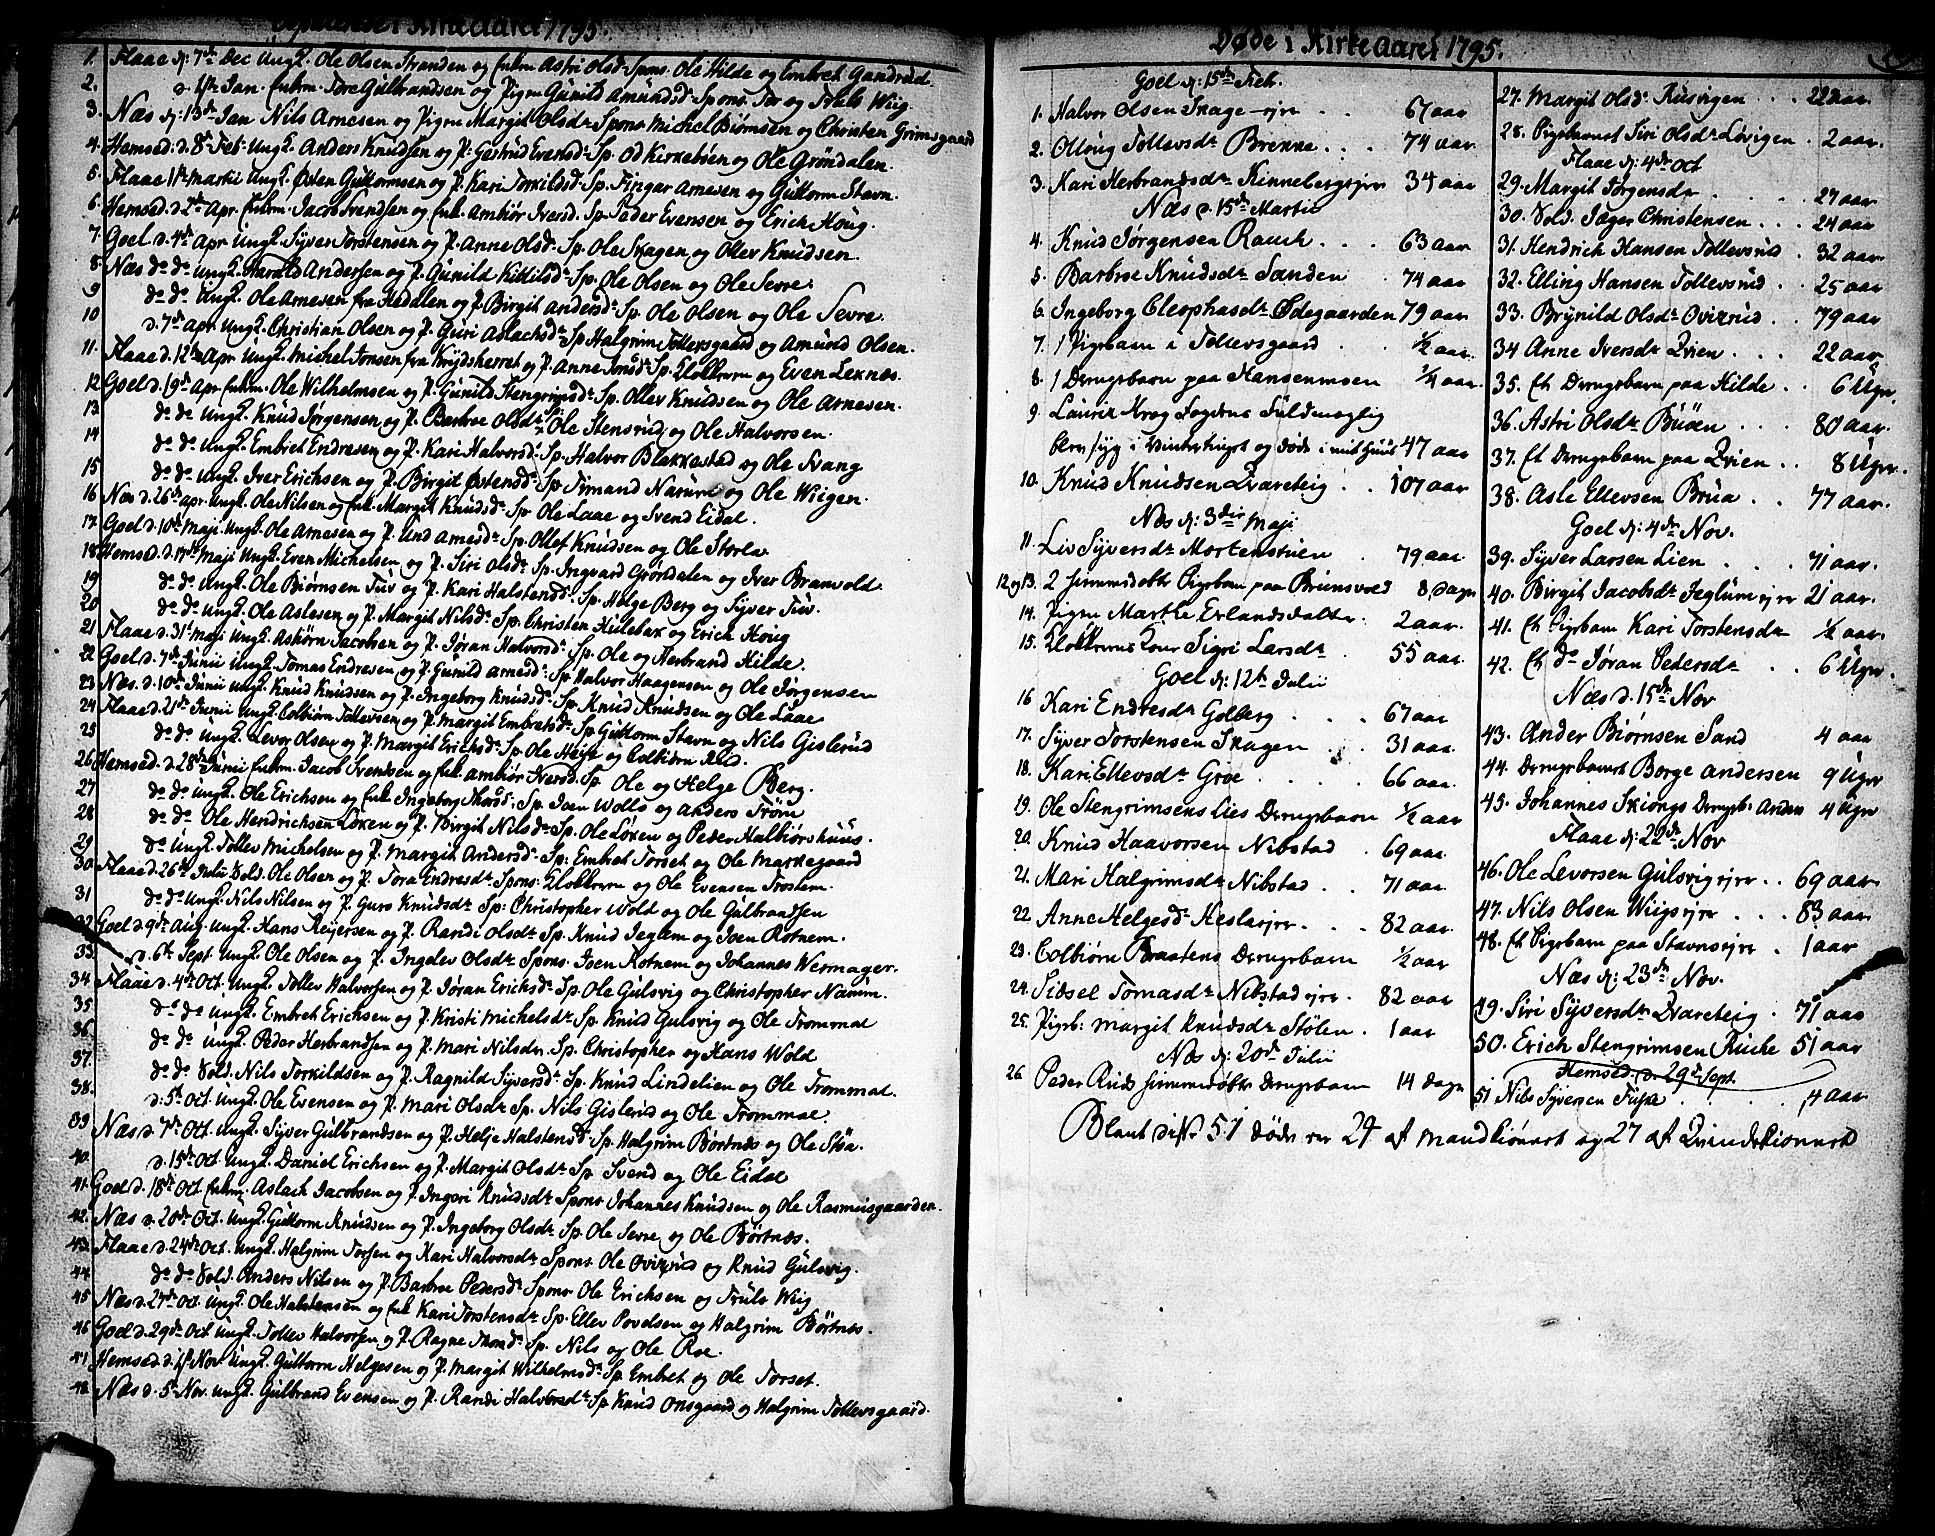 i Kirke Aaret 1795.
1. Flaae d: 7de Dec Ungk. Ole Olsen Stranden og Enkm Astri Olsd: Spons. Ole Hilde og Embret Gandrud.
2. d. 1ste Jan. Enkm. Tore Gulbrandsen og Pigen Gunild Amundsd: Spons. Tor og Truls Wiig.
3. Næs d: 13de Jan Nils Arnesen og Pigen Margit Olsdr Spons Michel Biørnsen og Christen Grimsgaard
4. Hemsed. d. 8de Feb: Ungk. Anders Knudsen og P. Giertrud Evensdr Sp. Od Kirkebøen og Ole Grøndalen.
5. Flaae 1ste Martii Ungk. Østen Guttormsen og P. Kari Torkildsd. Sp. Fingar Arnesen og Guttorm Stavn.
6. Hemsed d 2den Apr. Enkm. Jacob Svendsen og Enk. Ambiør Iversd. Sp. Peder Evensen og Erich Houg.
7. Goel d. 4de Apr Ungk. Syver Torstensen og P. Anne Olsd. Sp. Ole Skagen og Ollev Knudsen.
8. Næs do do Ungk. Harald Andersen og P. Gunild Kittilsdr Sp. Ole Olsen og Ole Sevre.
9 do do Ungk. Ole Arnesen fra Hedalen og P. Birgit Andersdr Sp. Ole Olsen og Ole Sevre.
10 d. 7de Apr Ungk. Christian Olsen og P. Guri Aslachsdr Sp Halgrim Tollevsgaard og Amund Olsen.
11. Flaae d. 12te Apr Ungk. Michel Jonsen fra Krydsherret og P. Anne Jonsdr Sp. Klokkeren og Even Leknæs.
12 Goel d. 19de Apr Enkm. Ole Wilhelmsen og P. Gunild Stengrimsdr Sp. Ollev Knudsen og Ole Arnesen.
13. do do Ungk. Knud Jørgensen og P. Barbroe Olsdr Ole Stensrud og Ole Halvorsen.
14 do do Ungk. Embret Endresen og P. Kari Halvorsd: Sp. Halvor Blakkestad og Ole Svang
15 do do Ungk. Iver Erichsen og P. Birgit Østensdr Sp. Timand Narum og Ole Wiigen.
16 Næs d. 26de Apr. Ungk. Ole Nilsen og Enk. Margit Knudsd: Sp Ole Laae og Svend Eidal.
17. Goel d. 10de Maji Ungk. Ole Arnesen og P. Und Arnesdr Sp. Ollef Knudsen og Ole Storla
18 Hemsed. d. 17de Maji Ungk. Even Michelsen og P. Siri Olsdr Sp. Ingvard Grøndalen og Iver Branvold.
19 do do Ungk. Ole Biørnsen Tuv og P. Kari Halstensdr Sp. Helge Berg og Syver Tuv.
20 do do Ungk. Ole Aslesen og P. Margit Nilsdr Sp. Christen Hulebak og Erich Houg
21 Flaae d. 31te Maji Ungk. Asbiørn Jacobsen og P. Jøran Halvorsdr Sp. Ole og Herbrand Hilde.
22 Goel d. 7de Junii Ungk. Tomas Endresen og P. Gunild Arnesdr Sp Halvor Haagensen og Ole Jørgensen
23 Næs. d. 10de Junii Ungk. Knud Knudsen og P. Ingeborg Knudsdr Sp. Knud Knudsen og Ole Laae
24 Flaae d. 21de Junii Ungk. Colbiørn Tollevsen og P. Margit Embretsdr Sp Guttorm Stavn og Nils Gislerud
25 do do Ungk. Levor Olsen og P. Margit Erichsdr Sp. Ole Heje og Colbiørn Rud.
26 Hemsed. d. 28de Junii Enkm. Jacob Svendsen og Enk. Ambiør Iversd. Sp. Ole og Helge Berg.
27 do do Ungk. Ole Erichsen og Enk Ingeborg Thorsdr Sp. Joen Wolls og Anders Trøm
28 do do Ole Hendrichsen Løken og P. Birgit Nilsdr Sp. Ole Løken og Peder Halbiørshuus.
29 do Ungk. Tollev Michelsen og P. Margit Andersd: Sp: Embret Torset og Ole Markegaard
30 Flaae d. 26de Julii Sold. Ole Olsen og P. Tora Endresdr Spons. Klokkeren og Ole Evensen Trostem.
31 do do Ungk. Nils Nilsen og P. Guro Knudsdr Sp: Christopher Wold og Ole Gulbrandsen
32 Goel d 9de Aug. Ungk. Hans Reyersen og P. Randi Olsdr Sp. Knud Jeglem og Joen Rotnem.
33. d. 6te Sept. Ungk. Ole Olsen og P. Ingelev Olsdr Spons. Joen Rotnem og Johannes Wermager.
34 Flaae d. 4de Oct. Ungk. Tollev Halvorsen og P. Jøran Erichsdr Sp. Ole Gulsvig og Christopher Narum.
35 do do Ungk. Embret Erichsen og P. Kristi Michelsdr Sp. Knud Gulsvig og Ole Trommal
36 do do Ungk. Peder Herbrandsen og P. Mari Nilsdr Sp. Christopher og Hans Wold
37. do do Sold. Nils Torkildsen og P. Ragnild Syversdr Sp. Knud Lindelien og Ole Trommal.
38. d. 5te Oct. Ungk. Ole Evensen og P. Mari Olsdr Sp. Nils Gislerud og Ole Trommal
39 Næs d. 7de Oct. Ungk. Syver Gulbrandsen og P. Helje Halstensd. Sp. Halgrim Børtnæs og Ole Skaa.
40. d. 15de Oct Ungk. Daniel Erichsen og P. Margit Olsdr Sp. Svend og Ole Eidal
41. Goel d. 18de Oct Enkm. Aslach Jacobsen og P. Ingeri Knudsdr Spons Johannes Knudsen og Ole Rasmusgaarden.
42. Næs d. 20de Oct. Ungk. Guttorm Knudsen og P. Ingeborg Olsdr Sp. Ole Sevre og Ole Børtnæs.
43. Flaae d. 24de Oct. Ungk. Halgrim Torsen og Kari Halvorsdr Spons. Ole Ovizrud og Knud Gulsvig.
44. do do Sold. Anders Nilsen og P. Barbroe Pedersdr Spons Ole Erichsen og Truls Wiig
45 Næs d. 27de Oct. Ungk. Ole Halstensen og Enk Kari Torstensdr Sp. Ellev Povelsen og Halgrim Børtnæs.
46 Goel d. 29de Oct Ungk. Tollev Halvorsen og P. Ragne Thomd: Sp. Nils og Ole Roe.
47 Hemsed d. 1ste Nov. Ungk. Guttorm Helgesen og P. Margit Wilhelmsdr Sp Embret og Ole Torset.
48. Næs d. 5te Nov. Ungk. Gulbrand Evensen og P. Randi Halvorsdr Sp Knud Onsgaard og Halgrim Tollevsgaard.
Døde i Kirke Aaret 1795.
Goel d: 15de Feb.
1. Halvor Olsen Skage-ejre . . 67 aar
2. Olloug Tollevsdr Brekne . . . 74 aar
3. Kari Herbrandsdr Rinnebergsejre 34 aar
Næs d. 15de Martii
4. Knud Jørgensen Rauch . . . 63 aar
5. Barbroe Knudsdr Sanden . 74 aar
6. Ingeborg Cleophasdr Ødegaarden 79 aar
7. 1 Pigebarn i Tollevsgaard . ½ aar.
8. 1 Drengebarn paa Hansemoen ¼ aar.
9 Lauriz Krog Fogdens Fuldmægtig
blev syg i Vintertinget og døde i mit Huus 47 aar
10. Knud Knudsen Qvareteig . . 107 aar
Næs d: 3die Maji
11. Liv Syversdr Mortenstuen . 79 aar.
12 og 13. 2 hiemmedøbte Pigebørn paa Bruunsvold 8 dage
14. Pigen Marthe Erlandsdatter . 2 aar.
15. Klokkerens Kone Sigri Larsdr . 55 aar.
Goel d: 12te Julii
16 Kari Endresdr Golberg . . . 67 aar
17. Syver Torstensen Skagen . . 31 aar.
18. Kari Ellevsdr Groe . . . . 66 aar.
19. Ole Stengrimsens Lies Drengebarn ½ aar
20. Knud Haavorsen Nibstad . 69 aar.
21. Mari Halgrimsdr Nibstad . . 71 aar
22. Anne Helgesdr Heslaejre . . . 82 aar.
23. Colbiørn Braatens Drengebarn ½ aar
24. Sidsel Tomasdr Nibstadejre . 82 aar
25. Pigeb: Margit Knudsdr Stølen . 1 aar
Næs d: 20de Julii
26. Peder Ruds hiemmedøbte Drengebarn 14 dage
27. Margit Olsdr Rusvigen . . . 22 aar.
28. Pigebarnet Siri Olsdr Lovigen . 2 aar.
Flaae d: 4de Oct
29. Margit Jørgensdr . . . . 27 aar
30. Sold. Jæger Christensen . . . 24 aar
31. Hendrich Hansen Tollevsrud . 32 aar
32. Elling Hansen Tollevsrud . 25 aar
33. Brynild Olsdr Ovizrud . . 79 aar
34 Anne Iversdr Qvien . . . 22 aar
35. Et Drengebarn paa Hilde . . 6 Uger.
36. Astri Olsdr Buøen . . . 80 aar.
37. Et Drengebarn paa Qvien . . 8 Uger.
38. Asle Ellevsen Brua . . . 77 aar
Goel d: 4de Nov.
39. Syver Larsen Lien . . . . 71 aar.
40. Birgit Jacobsdr Jeglumejre 21 aar.
41. Et Pigebarn Kari Torstensdr . ½ aar
42. Et do Jøran Pedersdr . . 6 Uger.
Næs d. 15de Nov
43. Ander Biørnsen Sand 4 aar
44. Drengebarnet Borge Andersen 9 Uger
45. Johannes Skiongs Drengeb: Anders 4 Uger
Flaae d: 22de Nov
46. Ole Levorsen Gulsvigejre . . 69 aar
47. Nils Olsen Wiigsejre . . . 83 aar
48. Et Pigebarn paa Stavnsejre . 1 aar
Næs d: 23de Nov.
49. Siri Syversdr Qvareteig . 71 aar
50. Erich Stengrimsen Ruche 51 aar
Hemsed. d. 29de Sept.
51 Nils Syversen Fuske . . . 4 aar
Blant disse 51 døde er 24 af Mandkiønnet og 27 af Qvindekiønnet